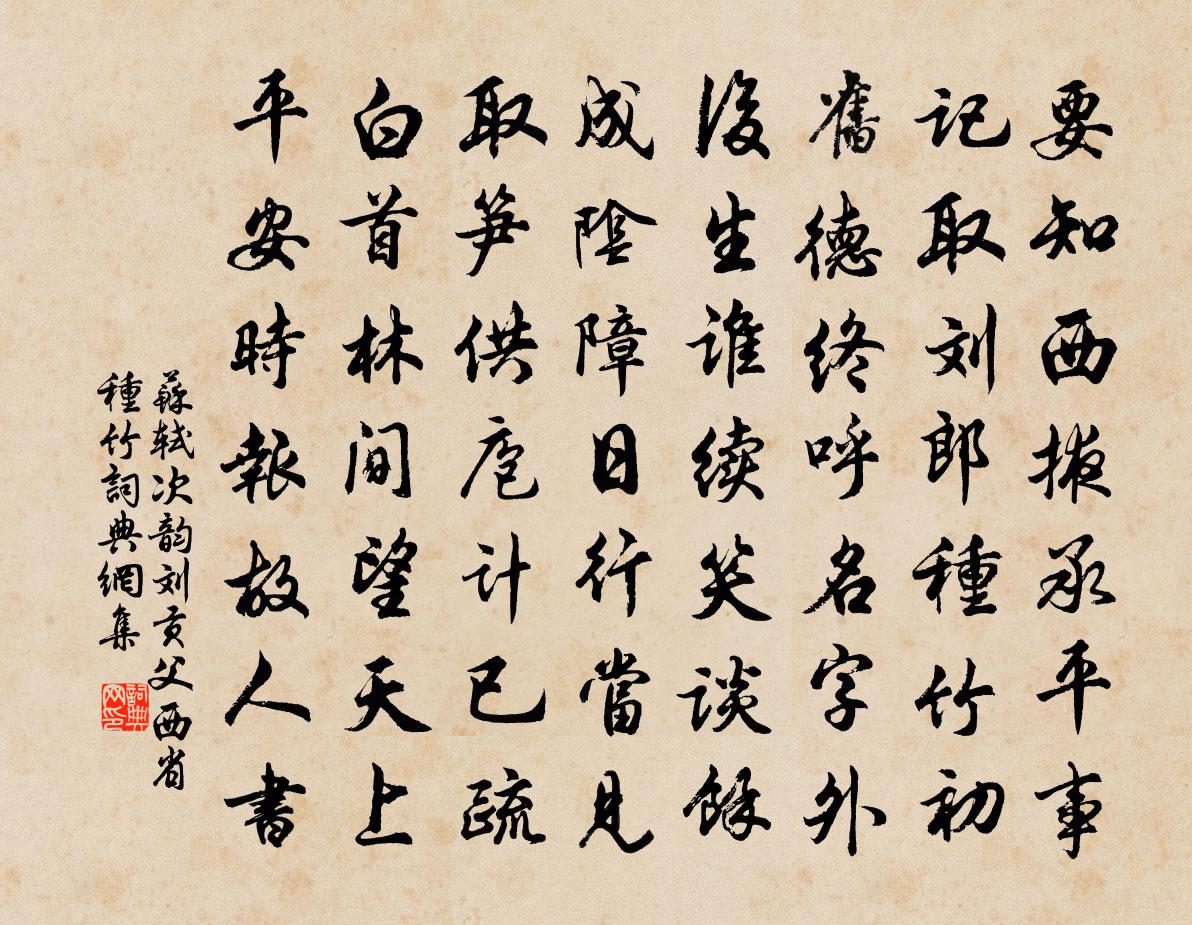 要知西掖承平事
记取刘郎種竹初
舊德终呼名字外
後生谁续笑谈餘
成陰障日行當見
取笋供庖计已疏
白首林间望天上
平安時報故人書
蘇軾次韵刘贡父西省
種竹詞典網集
詞典
网印